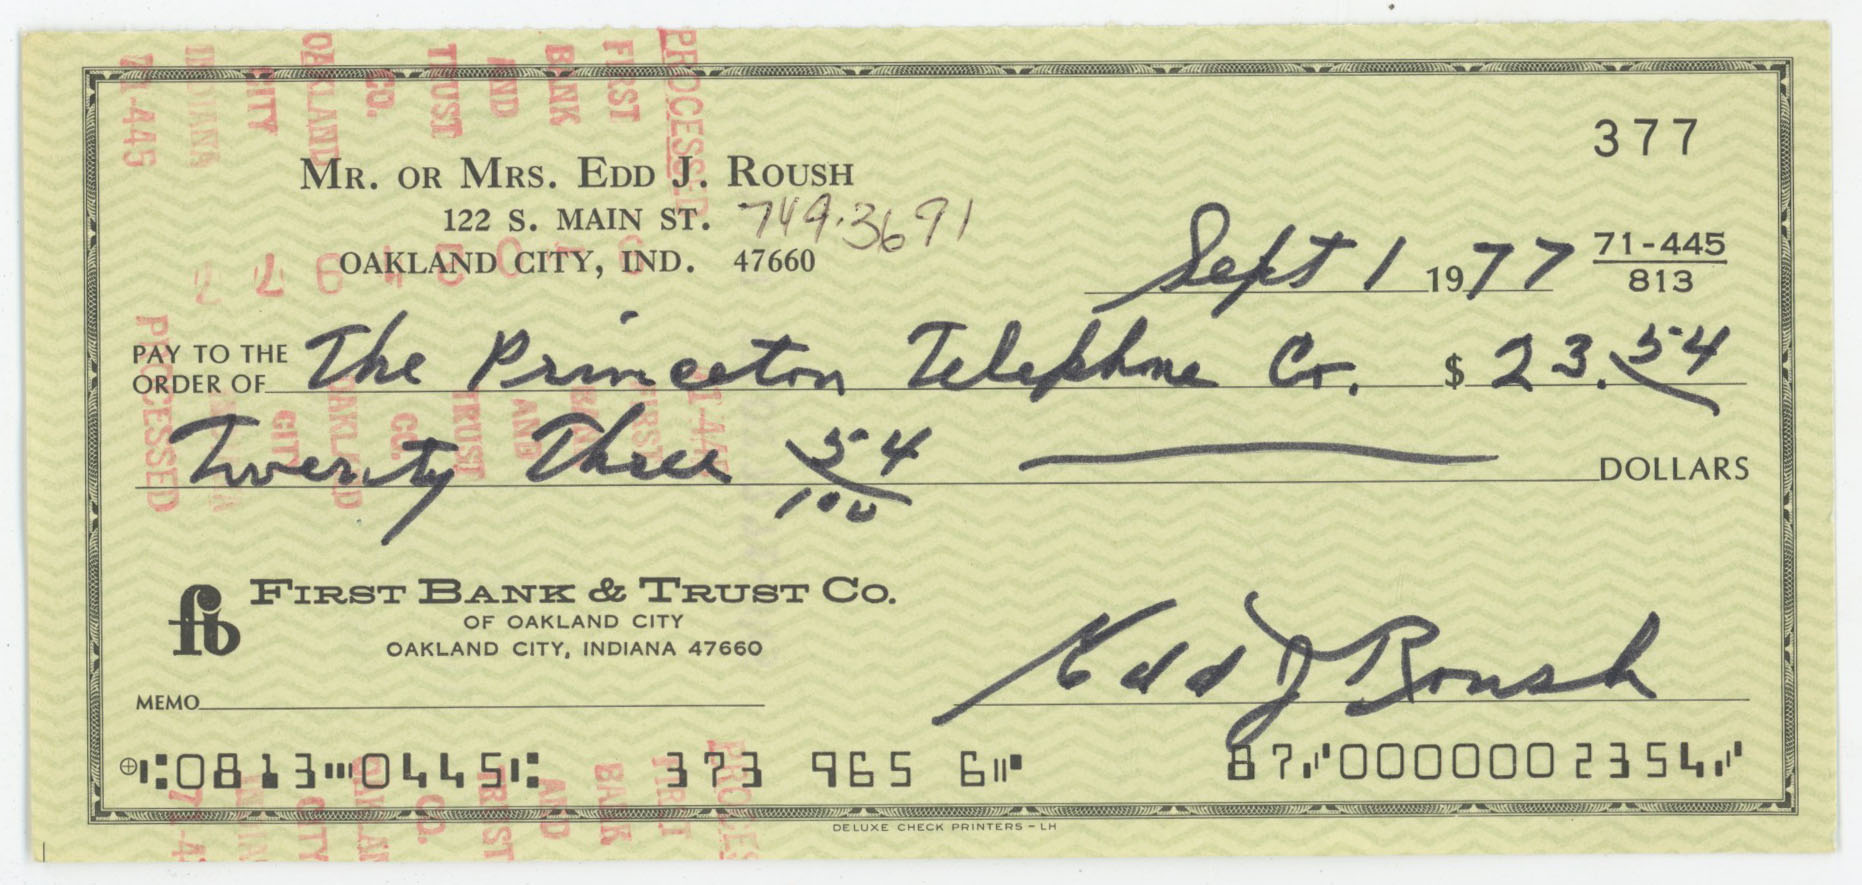 377
MR. OR MRS. EDD J. ROUSH
122 S. MAIN ST. 749.3691
OAKLAND CITY, IND. 47660
Sept 1 1977 71-445
813
PAY TO THE ORDER OF The Princeton Telephone Co. $ 23.54
Twenty Three 54/100 DOLLARS
fb FIRST BANK & TRUST CO.
OF OAKLAND CITY
OAKLAND CITY, INDIANA 47660
MEMO Edd J Roush
⑆0813⑉0445⑆ 373 965 6⑈ 87 ⑇0000002354⑇
DELUXE CHECK PRINTERS - LH
PROCESSED
FIRST
BANK
AND
TRUST
CO.
OAKLAND
CITY
INDIANA
71-445
PROCESSED
TRUST
CO.
CITY
OAKLAND
AND
BANK
TRUST
CO.
CITY